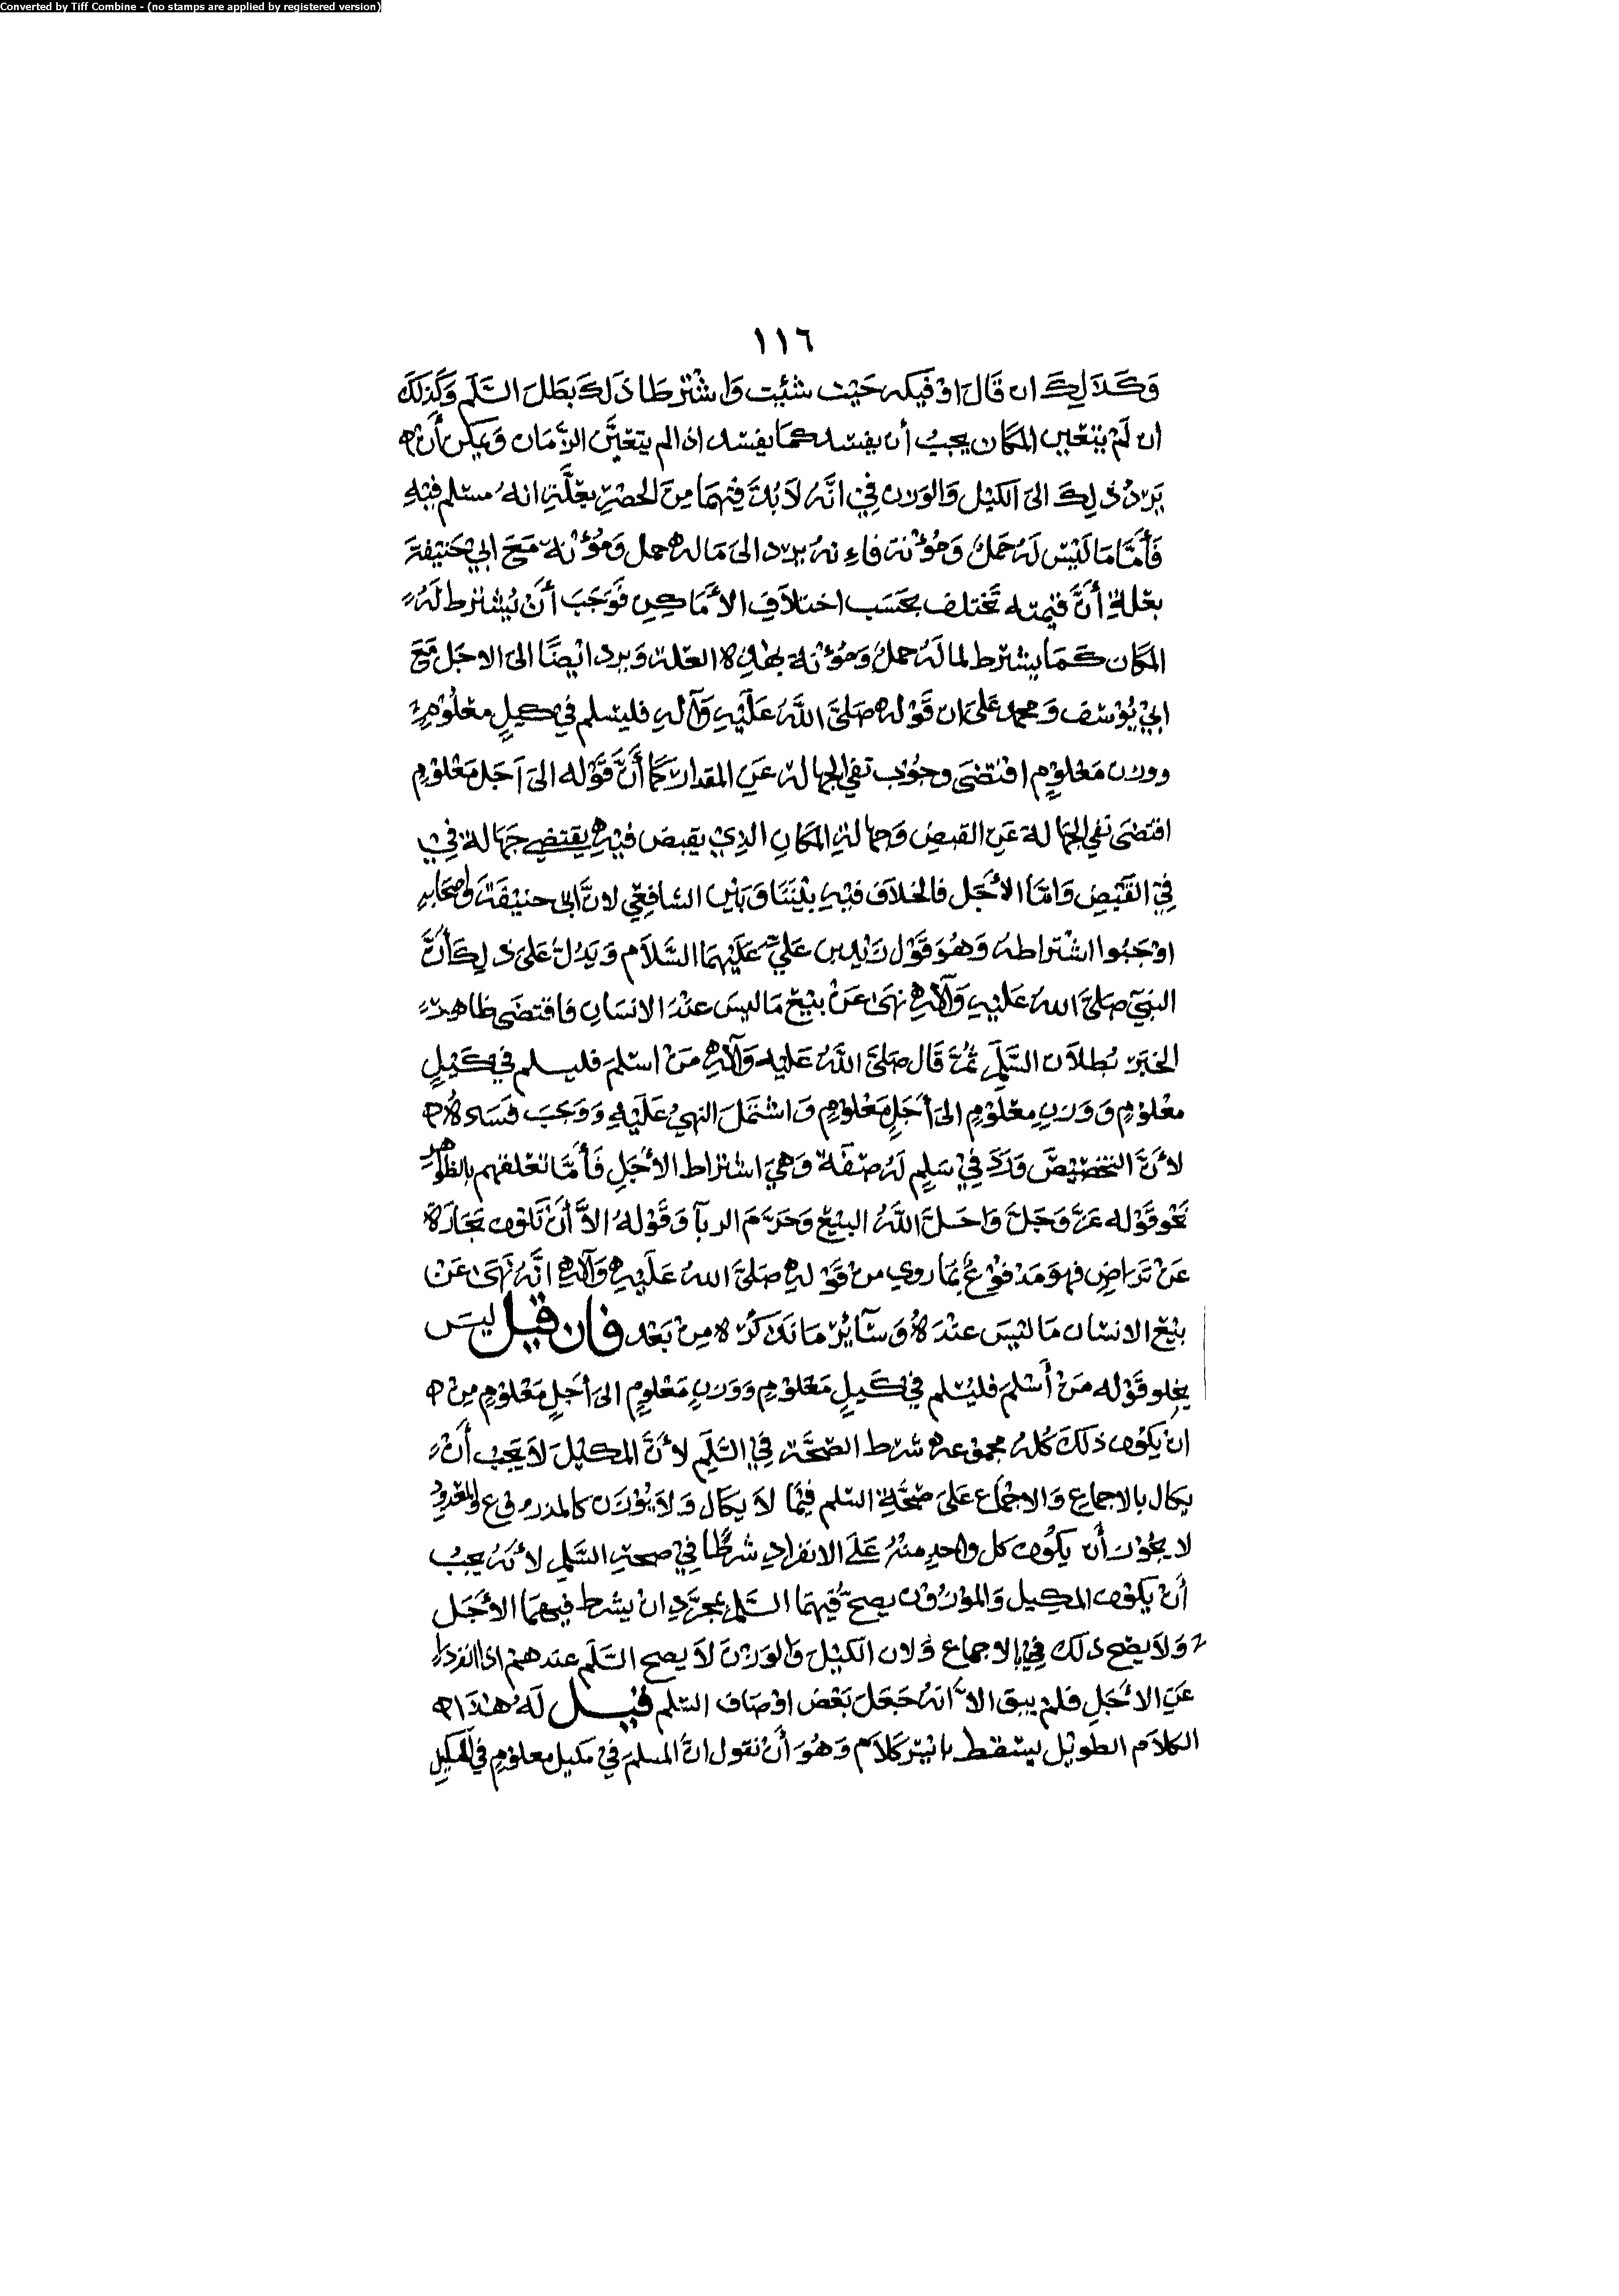 Converted by Tiff Combine - (no stamps are applied by registered version)
١١٦
وَكَذَلِكَ ان قَالَ اوْفيكه حَيْث شئِت وَاشْتَرطا ذَلِكَ بطَلَ السَّلَم وَكَذَلكَ
ان لَمْ يتعَين المكَان يجبُ أن يفسد كمَا يفسد اذالم يتعيَّن الزَّمَان وَيمكن أنْ
يَردُ ذَلِكَ الىَ الكيْل وَالوَزن فِيْ انَّهُ لاَ بُدَّ فيْهمَا مِنَ الحصْرِ بعلَّةِ انهُ مسْلم فيْهِ
فَأمَّا مَا لَيْسَ لَهُ حَملٌ وَمُؤْنة فاءِنهُ يرد الىَ مَا له حمل وَمُؤْنة مَعَ ابيْ حَنيْفةَ
بعَلةِ أنَّ قيْمته تَختلف بحَسَب اختلاَفِ الأمَاكِن فوَجَبَ أنْ يُشترط لَهُ
المكَان كَمَا يشترط لما لَهُ حملٌ وَمُؤْنة بهَذِه العلة وَيرد ايْضًا الىَ الاجَل مَعَ
ابيْ يُوْسُف وَمحمد عَلىَ ان قَوْله صَلىَّ اللَّهُ عَلَيْهِ وَآلهِ فليسْلم فيْ كيلٍ معْلُوْمٍ
ووزن مَعْلوْمٍ اقتضَى وجُوْب نفي الجهَالة عَنِ المقدار كمَا أنَّ قَوْله الىَ أجَل مَعْلوْمٍ
اقتضَى نفي الجهَالة عَنِ القبضِ وَجهالةِ المكَانِ الذِي يقبض فيْهِ يقتضِي جَهَالة فيْ
فِي القَبْضِ وَامَّا الأجَل فالخلاَف فيْهِ بيْنَنَا وَبَيْن الشافِعِي لانَّ ابىَ حنيْفَةَ وَاصحَابهِ
اوْجَبُوا اشْتراطهُ وَهُوَ قَوْل زيْد بن عَليٍّ عَلَيْهمَا السَّلاَم وَيَدُلُّ عَلىَ ذلِكَ أنَّ
النبيَّ صَلىَّ اللهُ عَليْهِ وَآلهِ نهىَ عَنْ بيْعِ مَا ليسَ عنْدَ الانسَانِ فاقتضَى ظاهِرُ
الخبَر بُطلاَن السَّلَمِ ثُمَّ قَال صَلىَّ اللَّهُ عَليه وَآلهِ مَنْ اسْلمَ فليسلم فيْ كَيْلٍ
معْلوْمٍ وَوَزنٍ معْلوْمٍ الىَ أجَلٍ مَعْلوْمٍ وَاشتَمَلَ النهيُ عَلَيْهِ وَوَجَبَ فسَادهُ
لأنَّ التخصِيْصَ وَرَدَ فِيْ سَلمٍ لَهُ صفَة وَهيَ اشتراط الأجَلِ فَأمَّا تعَلقهم بالظوَاهِرِ
نَحو قَوْله عَزَّ وَجَلَّ وَاحَلَّ اللَّهُ البيْعَ وَحَرَّمَ الربآ وَقَوْلهُ الاَّ أنْ تكوْن تجَارَة
عَنْ تَراضٍ فهوَ مَدْفوْعٌ بمَا روي منْ قَوْلهِ صَلىَّ اللهُ عَلَيْهِ وَآلهِ انَّهُ نَهَىَ عَنْ
بيْعِ الانسَان مَا ليْسَ عنْدَهُ وَسَآئِر مَا نَذكُره مِنْ بَعْد فَان قيْل ليسَ
يخلو قَوْله مَنْ أسْلمَ فليُسْلم فيْ كَيلٍ مَعْلوْمٍ وَوَزنٍ مَعْلومٍ الىَ أجَلٍ مَعْلوْمٍ مِنْ
انْ يكوْن ذلكَ كُلهُ مجموْعهُ شرط الصّحَّة فِي السَّلَمِ لأنَّ المكيْلَ لاَ يَجب أنْ
يكال بالاجماعِ وَالاجْمَاع عَلىَ صحَّةِ السّلم فيْمَا لاَ يكَال وَلاَ يُوْزَن كالمذرُوْع وَالمعْدود
لا يجوْز أن يكوْن كل واحدٍ منْهُ عَلىَ الانفرادِ شرطًا فِيْ صحةِ السَّلمِ لأنهُ يجبُ
أنْ يكوْن المكِيل وَالموْزوْن يصحّ فيْهمَا السَّلم بمجرَّدِ ان يشرط فيهمَا الأجَل
وَلاَ يصْح ذلكَ فِي الاجماع وَلان الكيْل وَالوَزنَ لاَ يصح السَّلَم عندهمْ اذا انفرَدا
عَنِ الأجَلِ فلمْ يبق الاَّ انهُ جَعَلَ بَعْض اوْصَاف السّلم قيْل لَهُ هذا
الكلاَم الطوِيْل يسْقط بايْسَر كَلاَمٍ وَهُوَ أنْ نقول انَّ المسلمَ فيْ مكيل معلوْمٍ في المكيلِ